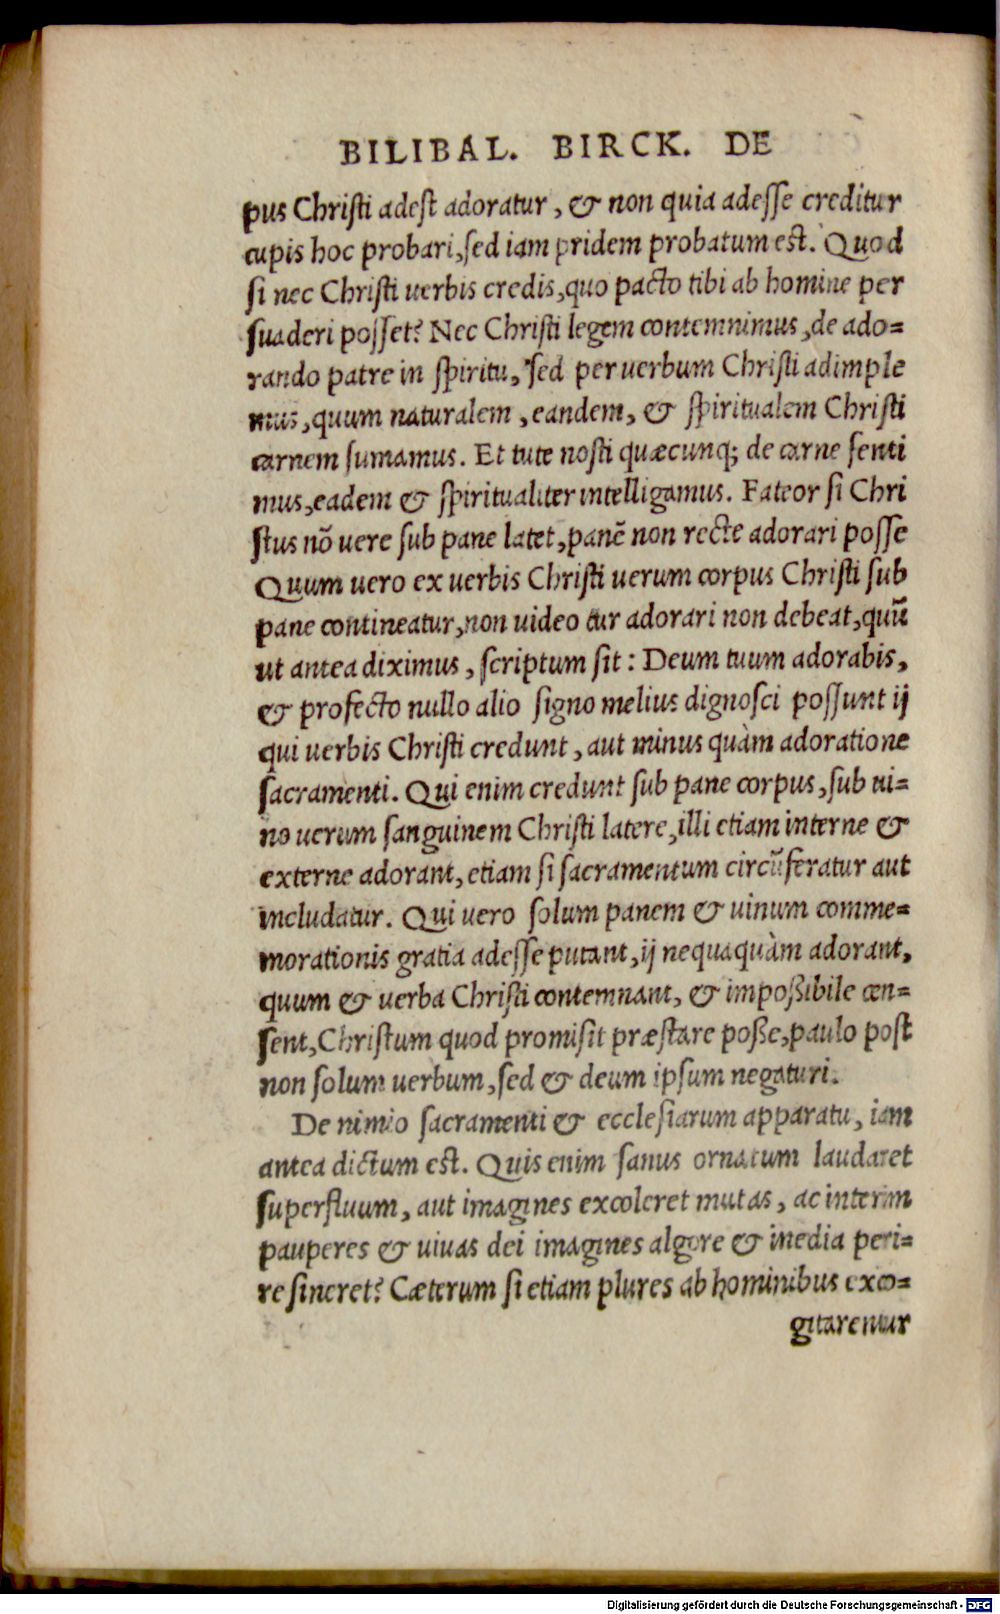 BILIBAL. BIRCK. DE
pus Christi adest adoratur, & non quia adesse creditur
cupis hoc probari, sed iam pridem probatum est. Quod
si nec Christi uerbis credis, quo pacto tibi ab homine per
suaderi posset? Nec Christi legem contemnimus, de ado=
rando patre in spiritu, sed per uerbum Christi adimple
mus, quum naturalem, eandem, & spiritualem Christi
carnem sumamus. Et tute nosti quæcunq; de carne senti
mus, eadem & spiritualiter intelligamus. Fateor si Chri
stus nõ uere sub pane latet, panẽ non recte adorari posse
Quum uero ex uerbis Christi uerum corpus Christi sub
pane contineatur, non uideo cur adorari non debeat, quũ
ut antea diximus, scriptum sit: Deum tuum adorabis,
& profecto nullo alio signo melius dignosci possunt ij
qui uerbis Christi credunt, aut minus quàm adoratione
sacramenti. Qui enim credunt sub pane corpus, sub ui=
no uerum sanguinem Christi latere, illi etiam interne &
externe adorant, etiam si sacramentum circũferatur aut
includatur. Qui uero solum panem & uinum comme=
morationis gratia adesse putant, ij nequaquàm adorant,
quum & uerba Christi contemnant, & impoßibile cen=
sent, Christum quod promisit præstare poße, paulo post
non solum uerbum, sed & deum ipsum negaturi.
De nimio sacramenti & ecclesiarum apparatu, iam
antea dictum est. Quis enim sanus ornatum laudaret
superfluum, aut imagines excoleret mutas, ac interim
pauperes & uiuas dei imagines algore & inedia peri=
re sineret? Cæterum si etiam plures ab hominibus exco=
gitarentur
Digitalisierung gefördert durch die Deutsche Forschungsgemeinschaft - DFG